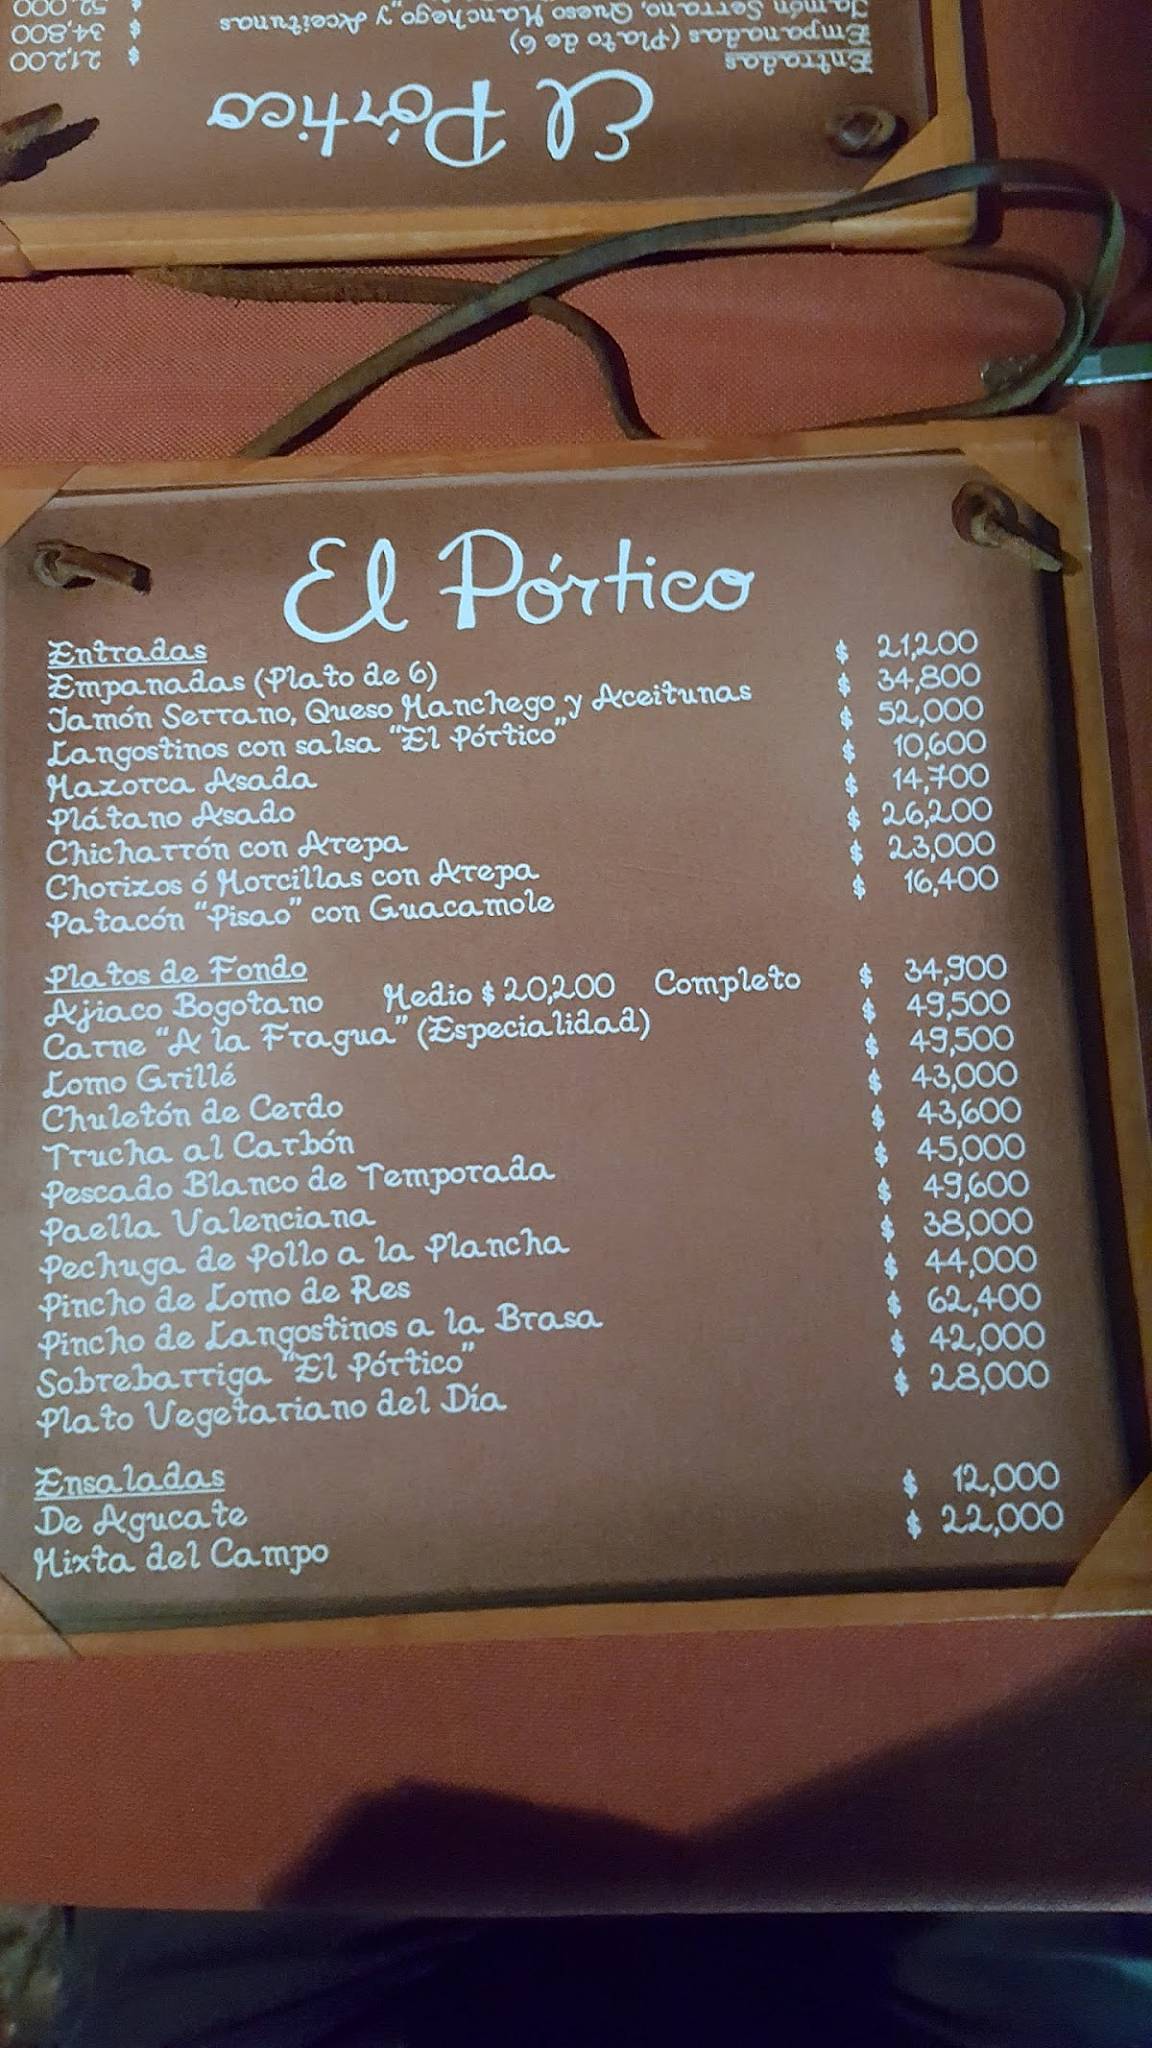 El Pórtico
Entradas $ 21,200
Empanadas (Plato de 6) $ 34,800
Jamón Serrano, Queso Manchego y Aceitunas $ 52,000
El Pórtico
Entradas
Empanadas (Plato de 6) $ 21,200
Jamón Serrano, Queso Manchego y Aceitunas $ 34,800
Langostinos con salsa "El Pórtico" $ 52,000
Mazorca Asada $ 10,600
Plátano Asado $ 14,700
Chicharrón con Arepa $ 26,200
Chorizos ó Morcillas con Arepa $ 23,000
Patacón "Pisao" con Guacamole $ 16,400
Platos de Fondo
Ajiaco Bogotano Medio $ 20,200 Completo $ 34,900
Carne "A la Fragua" (Especialidad) $ 49,500
Lomo Grillé $ 49,500
Chuletón de Cerdo $ 43,000
Trucha al Carbón $ 43,600
Pescado Blanco de Temporada $ 45,000
Paella Valenciana $ 49,600
Pechuga de Pollo a la Plancha $ 38,000
Pincho de Lomo de Res $ 44,000
Pincho de Langostinos a la Brasa $ 62,400
Sobrebarriga "El Pórtico" $ 42,000
Plato Vegetariano del Día $ 28,000
Ensaladas
De Agucate $ 12,000
Mixta del Campo $ 22,000